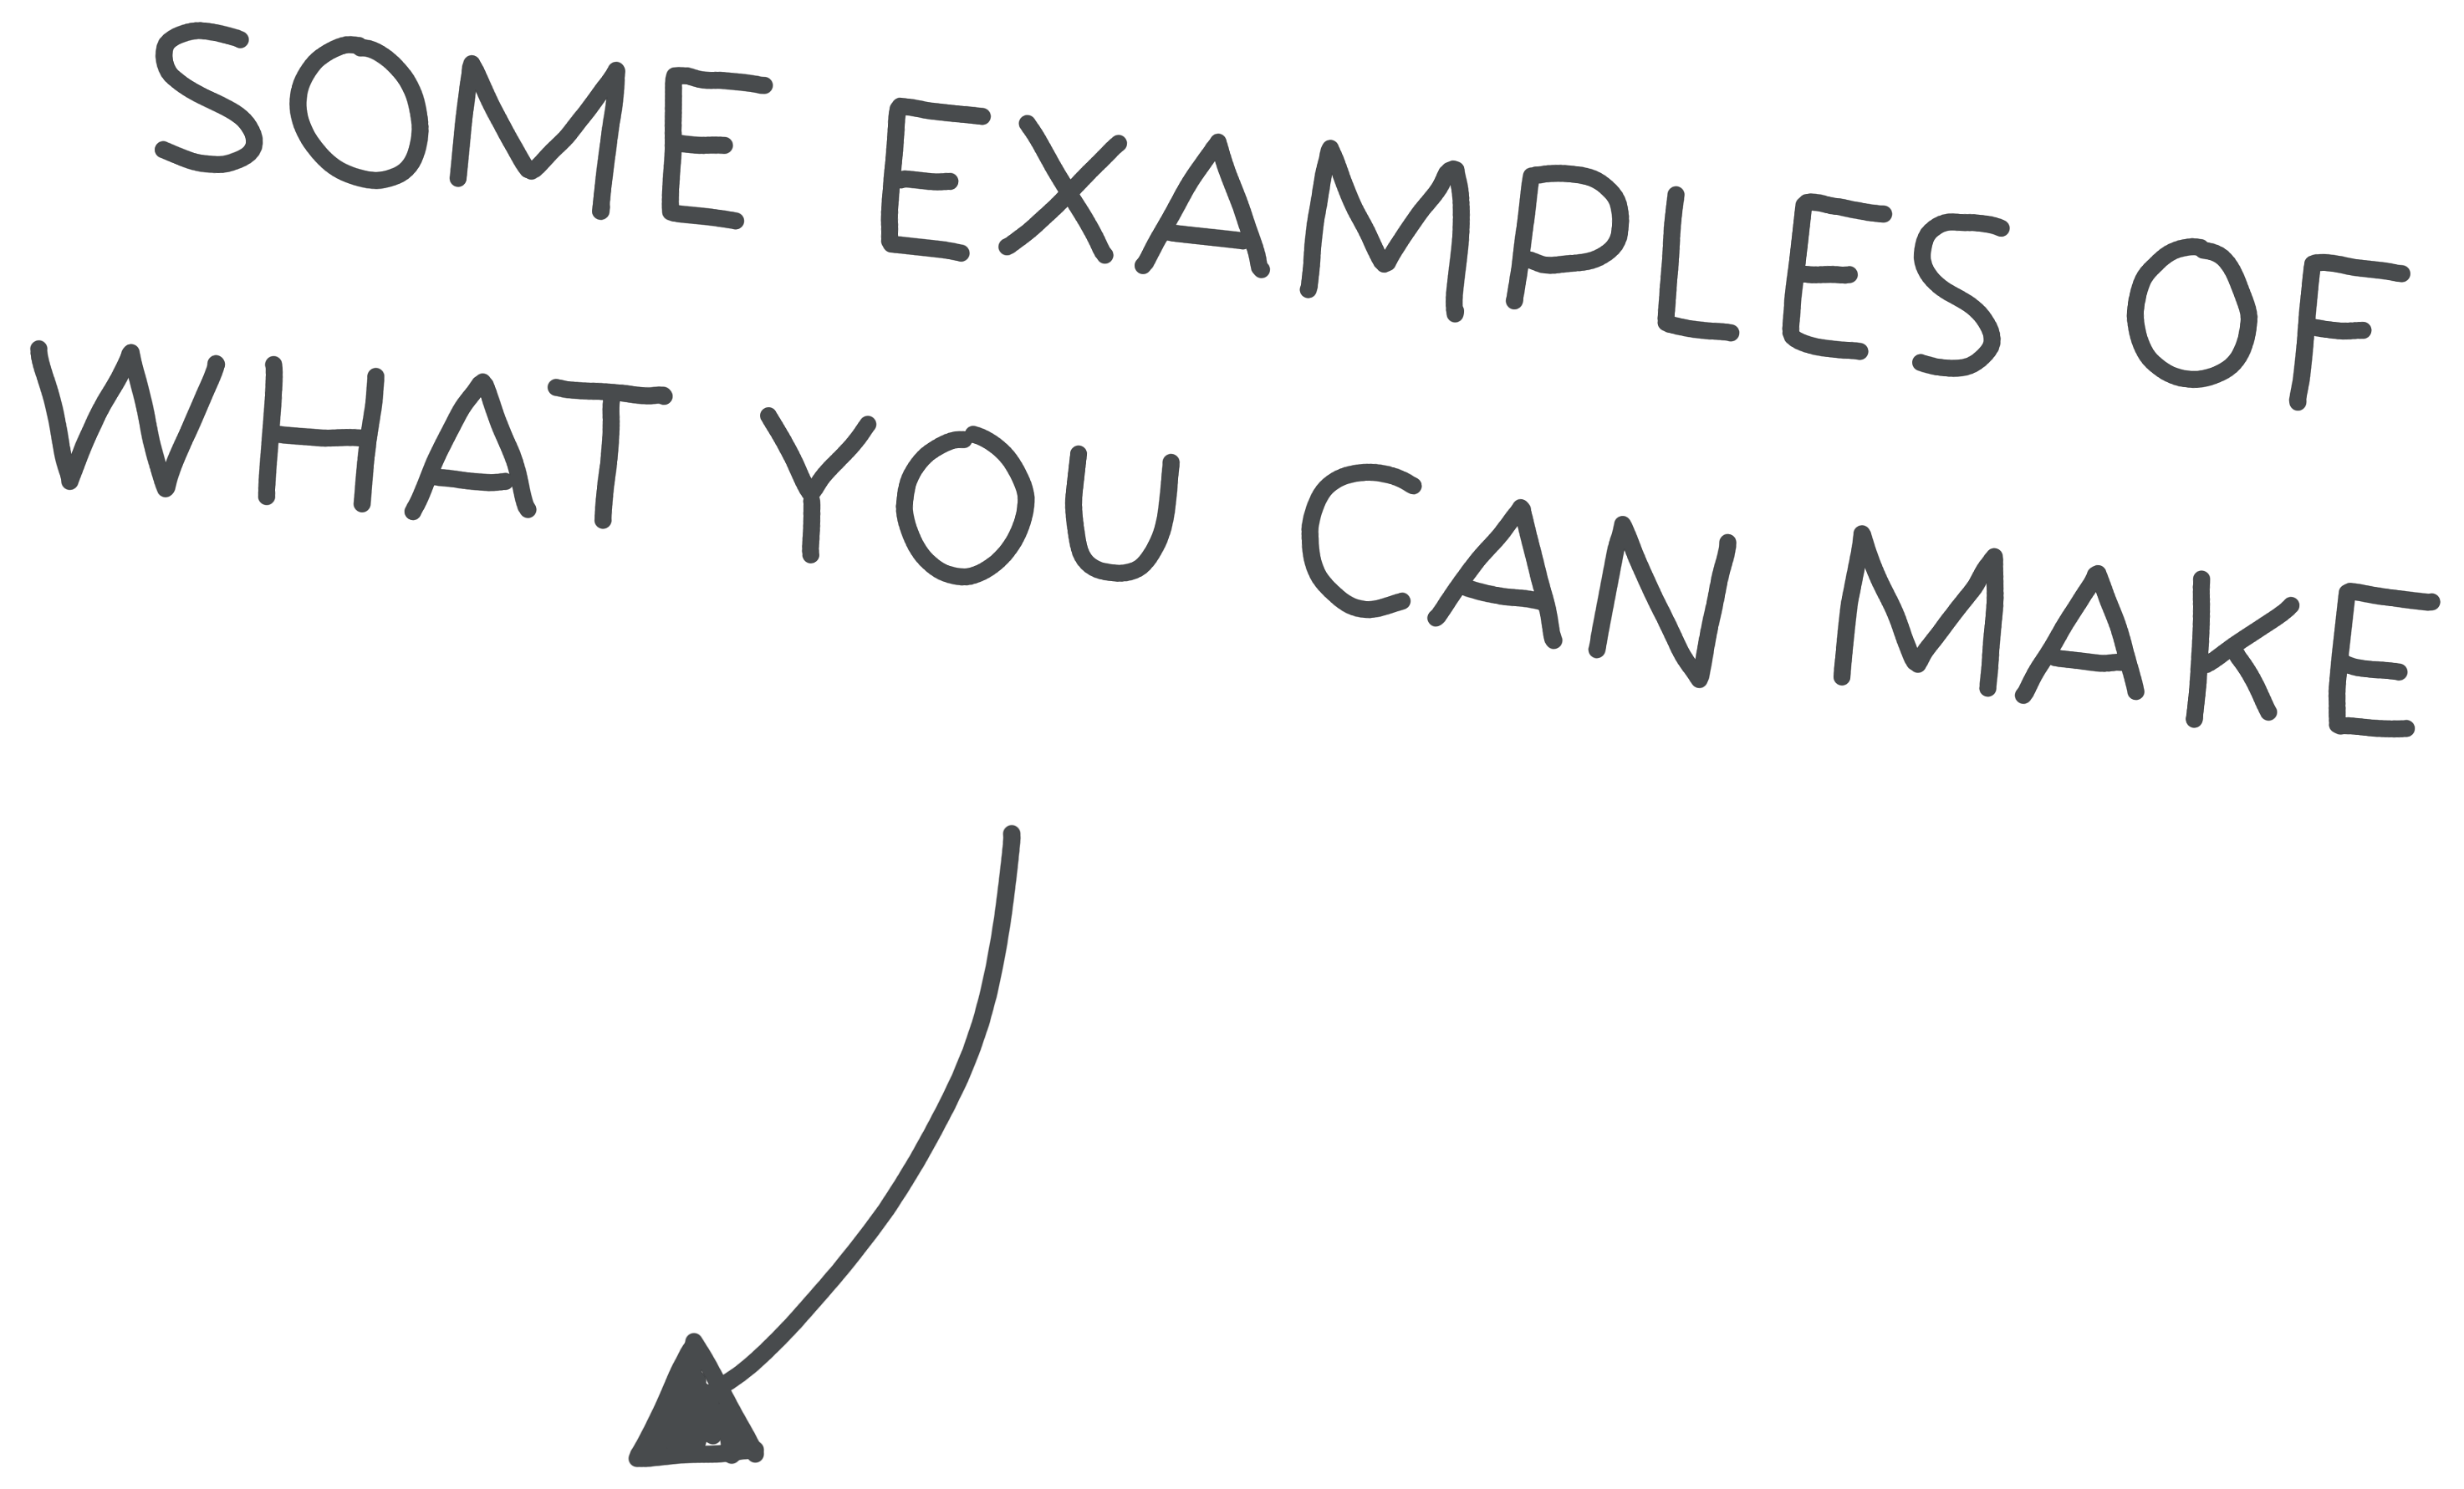 SOME EXAMPLES OF
WHAT YOU CAN MAKE